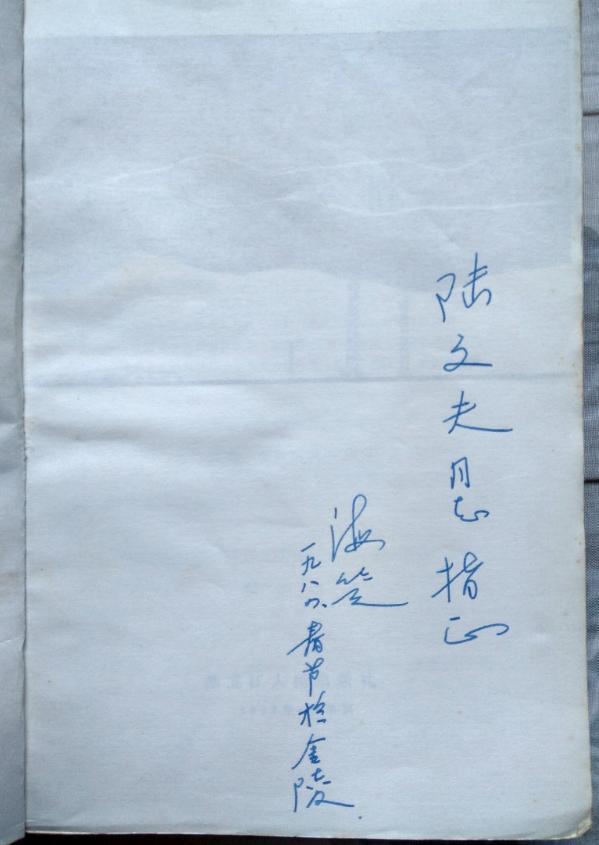 陆文夫同志 指正
海笑
一九八四、春节於金陵.